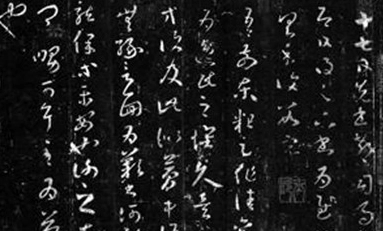 十七日先書郗司馬
即日得足下書為慰
具示復數字
吾前東粗足作佳觀
為逸民之懷久矣足
方復及此似夢中語
無緣言面為歎書何能
龍保等平安也謝之甚
見卿舅可耳至為簡
也